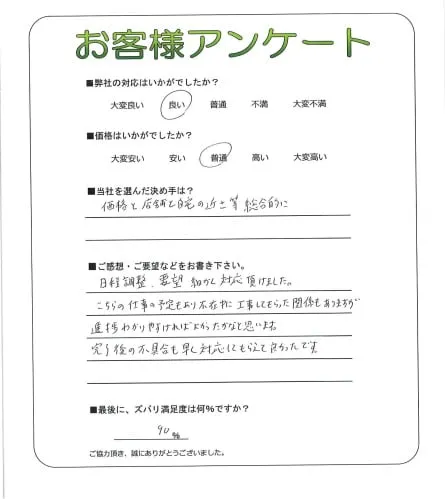 お客様アンケート
■弊社の対応はいかがでしたか？
大変良い 良い 普通 不満 大変不満
■価格はいかがでしたか？
大変安い 安い 普通 高い 大変高い
■当社を選んだ決め手は？
価格と店舗と自宅の近さ等総合的に
■ご感想・ご要望などをお書き下さい。
日程調整、要望 細かく対応頂けました。
こちらの仕事の予定もあり不在中に工事してもらった関係もありますが
進捗わかりやすければよかったかなと思います
完了後の不具合も早く対応してもらえて良かったです
■最後に、ズバリ満足度は何%ですか？
90%
ご協力頂き、誠にありがとうございました。